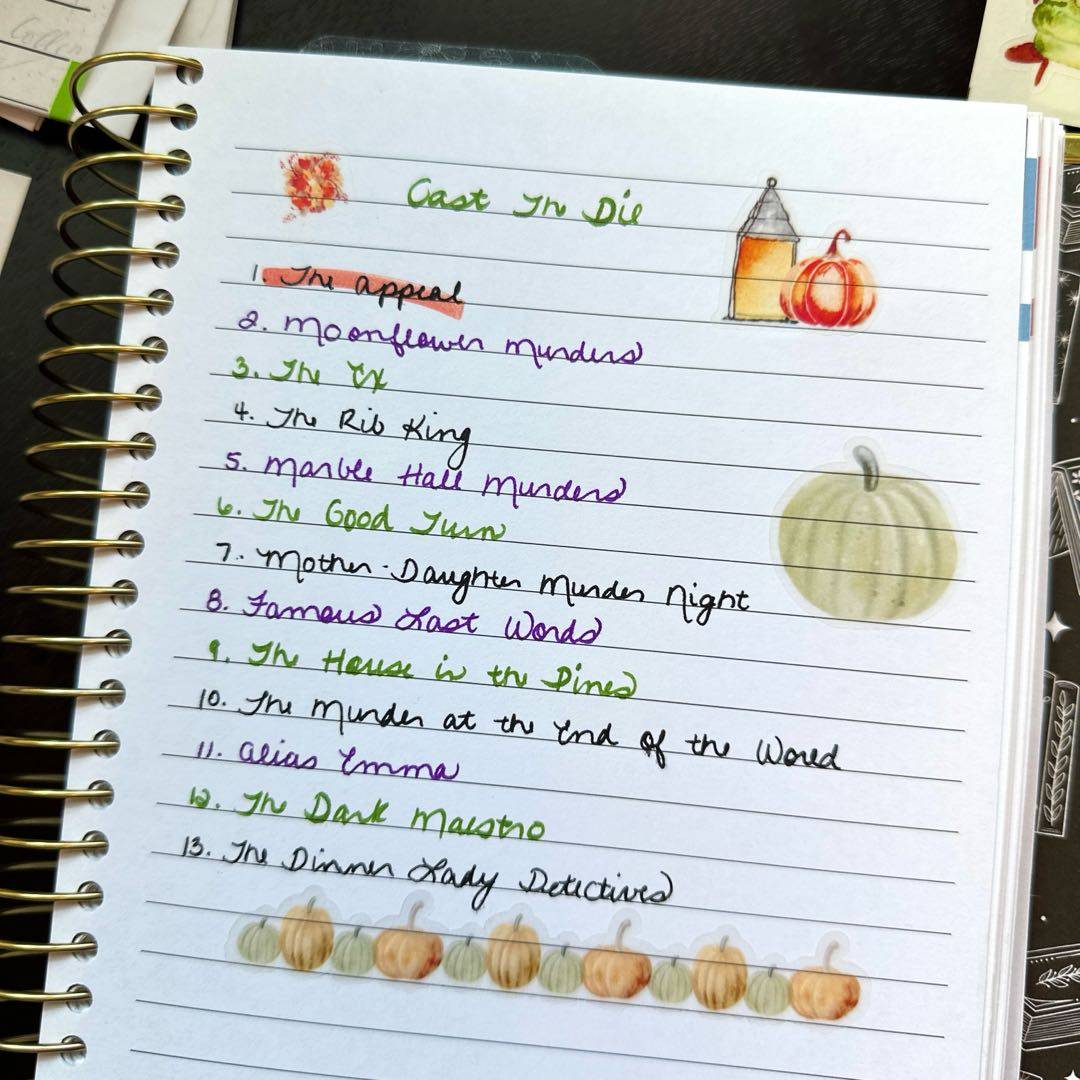 Cast The Die
1. The Appeal
2. Moonflower Murders
3. The Ex
4. The Rib King
5. Marble Hall Murders
6. The Good Turn
7. Mother-Daughter Murder Night
8. Famous Last Words
9. The House in the Pines
10. The Murder at the End of the World
11. Alias Emma
12. The Dark Maestro
13. The Dinner Lady Detectives